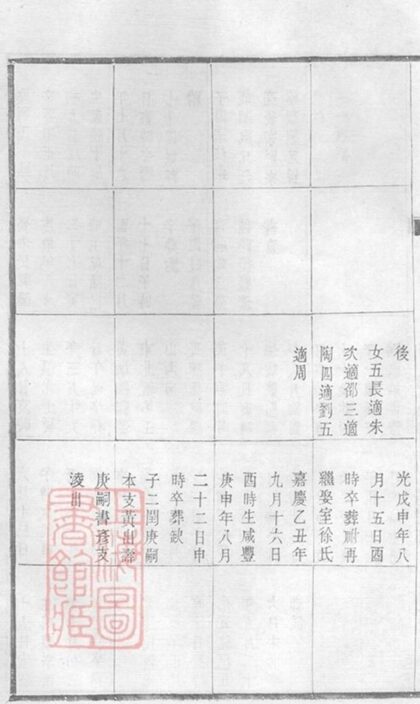 後
女五長適朱
次適鄒三適
陶四適劉五
適周
光戊申年八
月十五日酉
時卒葬祔再
繼娶室徐氏
嘉慶乙丑年
九月十六日
酉時生咸豐
庚申年八月
二十二日申
時卒葬缺
子二閏庚嗣
本支黃出壽
庚嗣書彥支
淩出